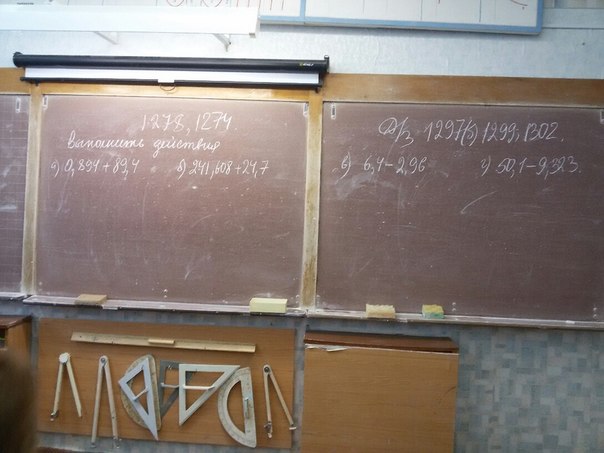 1278, 1274.
Выполнить действия
а) 0,894 + 89,4 б) 241,608 + 24,7
Д/з 1297(б) 1299, 1302
в) 6,4 - 2,96 г) 50,1 - 9,323.